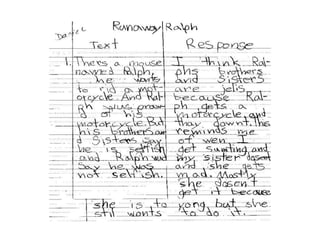 Daniel
Runaway Ralph
Text
Response
1. Theres a mouse
named Ralph,
he wants
to rid a mot-
orcycle. And Ral-
ph
d of his
motorcycle. But
his brothers an
d Sisters say
he is selfish
and Ralph
say he was
not selfish.
I think Ral-
phs brothers
and Sisters
are jelis
because Ral-
ph gets a
motorcycle, and
thay downt. This
reminds me
of wen I
get sumting, and
my sister dosent
and she gets
mad. Mostly
she dosen t
get it because
she is to yong but she
still wonts to do it.